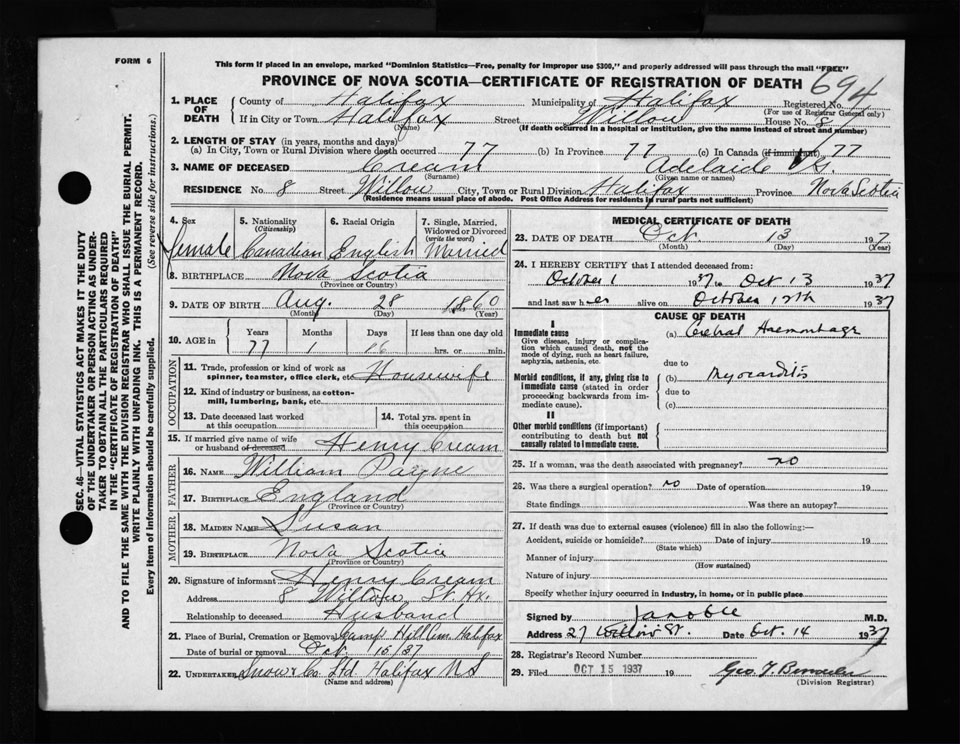 FORM 6
This form if placed in an envelope, marked "Dominion Statistics—Free, penalty for improper use $300," and properly addressed will pass through the mail "FREE"
PROVINCE OF NOVA SCOTIA—CERTIFICATE OF REGISTRATION OF DEATH
694
1. PLACE OF DEATH
County of Halifax Municipality of Halifax Registered No.
(For use of Registrar General only)
If in City or Town Halifax Street Willow House No. 8
(Name) (If death occurred in a hospital or institution, give the name instead of street and number)
2. LENGTH OF STAY (in years, months and days)
(a) In City, Town or Rural Division where death occurred 77 (b) In Province 77 (c) In Canada (if immigrant) 77
3. NAME OF DECEASED Cream Adelaide G.
(Surname) (Given name or names)
RESIDENCE No. 8 Street Willow City, Town or Rural Division Halifax Province Nova Scotia
(Residence means usual place of abode. Post Office Address for residents in rural parts not sufficient)
4. Sex female
5. Nationality (Citizenship) Canadian
6. Racial Origin English
7. Single, Married, Widowed or Divorced (write the word) Married
8. BIRTHPLACE Nova Scotia
(Province or Country)
9. DATE OF BIRTH Aug. 28 1860
(Month) (Day) (Year)
10. AGE in Years Months Days If less than one day old
77 1 16 hrs. or min.
OCCUPATION
11. Trade, profession or kind of work as spinner, teamster, office clerk, etc. Housewife
12. Kind of industry or business, as cotton-mill, lumbering, bank, etc.
13. Date deceased last worked at this occupation
14. Total yrs. spent in this occupation
15. If married give name of wife or husband of deceased Henry Cream
FATHER
16. NAME William Payne
17. BIRTHPLACE England
(Province or Country)
MOTHER
18. MAIDEN NAME Susan
19. BIRTHPLACE Nova Scotia
(Province or Country)
20. Signature of informant Henry Cream
Address 8 Willow St. Hx.
Relationship to deceased Husband
21. Place of Burial, Cremation or Removal Camp Hill Cem. Halifax
Date of burial or removal Oct 15/37
22. UNDERTAKER Snow & Co Ltd. Halifax N S
(Name and address)
MEDICAL CERTIFICATE OF DEATH
23. DATE OF DEATH Oct. 13 1937
(Month) (Day) (Year)
24. I HEREBY CERTIFY that I attended deceased from:
October 1 1937 to Oct 13 1937
and last saw her alive on October 12th 1937
CAUSE OF DEATH
I
Immediate cause
Give disease, injury or complication which caused death, not the mode of dying, such as heart failure, asphyxia, asthenia, etc.
(a) Cerebral Haemorrhage
due to
Morbid conditions, if any, giving rise to immediate cause (stated in order proceeding backwards from immediate cause).
(b) Myocarditis
due to
(c)
II
Other morbid conditions (if important) contributing to death but not causally related to immediate cause.
25. If a woman, was the death associated with pregnancy? no
26. Was there a surgical operation? no Date of operation 19
State findings Was there an autopsy?
27. If death was due to external causes (violence) fill in also the following:—
Accident, suicide or homicide? Date of injury 19
(State which)
Manner of injury
(How sustained)
Nature of injury
Specify whether injury occurred in industry, in home, or in public place
Signed by M.D.
Address 27 St. Date Oct. 14 1937
28. Registrar's Record Number
29. Filed OCT 15 1937 19 Geo. T.
(Division Registrar)
SEC. 46—VITAL STATISTICS ACT MAKES IT THE DUTY
OF THE UNDERTAKER OR PERSON ACTING AS UNDER-
TAKER TO OBTAIN ALL THE PARTICULARS REQUIRED
IN THE "CERTIFICATE OF REGISTRATION OF DEATH"
AND TO FILE THE SAME WITH THE DIVISION REGISTRAR WHO SHALL ISSUE THE BURIAL PERMIT.
WRITE PLAINLY WITH UNFADING INK. THIS IS A PERMANENT RECORD.
Every item of information should be carefully supplied. (See reverse side for instructions.)